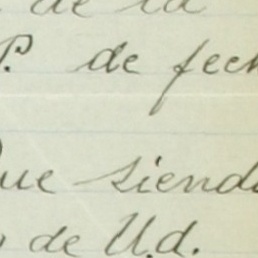 de la
P. de fech
que siendo
de U.d.